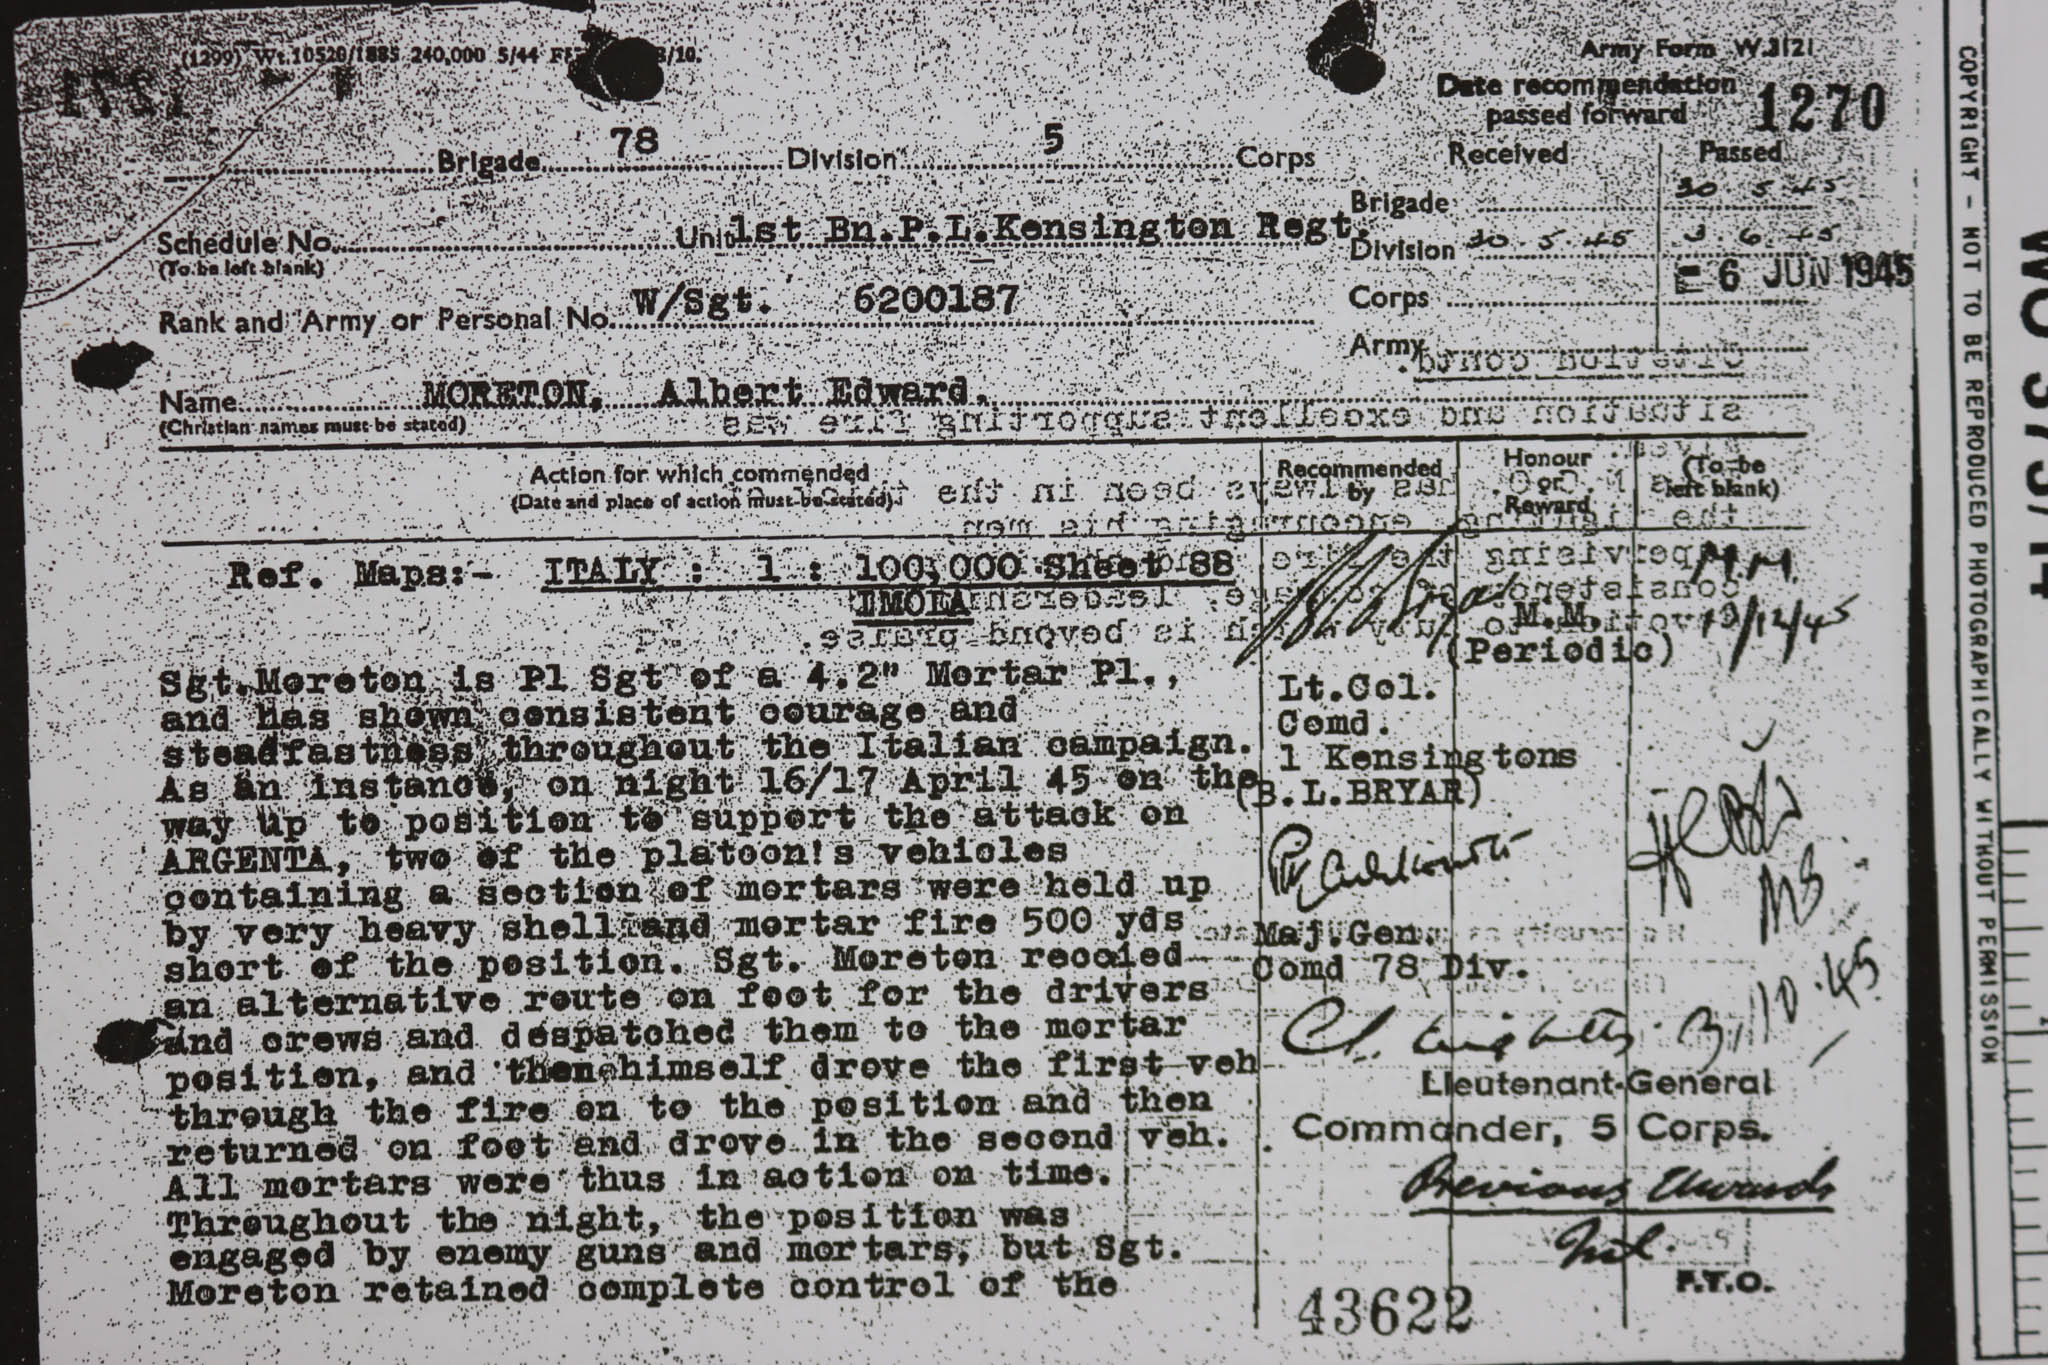 (1299) Wt.10520/1885 240,000 5/44
Army Form W.3121
Date recommendation
passed forward
1270
Brigade 78 Division 5 Corps
Received Passed
Brigade 30 5 45
Schedule No. Unit 1st Bn.P.L.Kensington Regt.
(To be left blank)
Division 30.5.45 3.6.45
Rank and Army or Personal No. W/Sgt. 6200187
Corps 6 JUN 1945
Army
Name MORETON, Albert Edward.
(Christian names must be stated)
Action for which commended
(Date and place of action must be stated)
Recommended
by
Honour
or
Reward
(To be
left blank)
Ref. Maps:- ITALY : 1 : 100,000 Sheet 88
IMOLA
Sgt.Moreton is Pl Sgt of a 4.2" Mortar Pl.,
and has shown consistent courage and
steadfastness throughout the Italian campaign.
As an instance, on night 16/17 April 45 on the
way up to position to support the attack on
ARGENTA, two of the platoon's vehicles
containing a section of mortars were held up
by very heavy shell and mortar fire 500 yds
short of the position. Sgt. Moreton recceied
an alternative route on foot for the drivers
and crews and despatched them to the mortar
position, and then himself drove the first veh
through the fire on to the position and then
returned on foot and drove in the second veh.
All mortars were thus in action on time.
Throughout the night, the position was
engaged by enemy guns and mortars, but Sgt.
Moreton retained complete control of the
Lt.Col.
Comd.
1 Kensingtons
(B.L.BRYAR)
Maj.Gen.
Comd 78 Div.
Lieutenant-General
Commander, 5 Corps.
M.M.
(Periodic)
M.M.
19/12/45
MS
31.10.45
Previous Awards
Nil.
P.T.O.
43622
COPYRIGHT - NOT TO BE REPRODUCED PHOTOGRAPHICALLY WITHOUT PERMISSION
WO 373/14